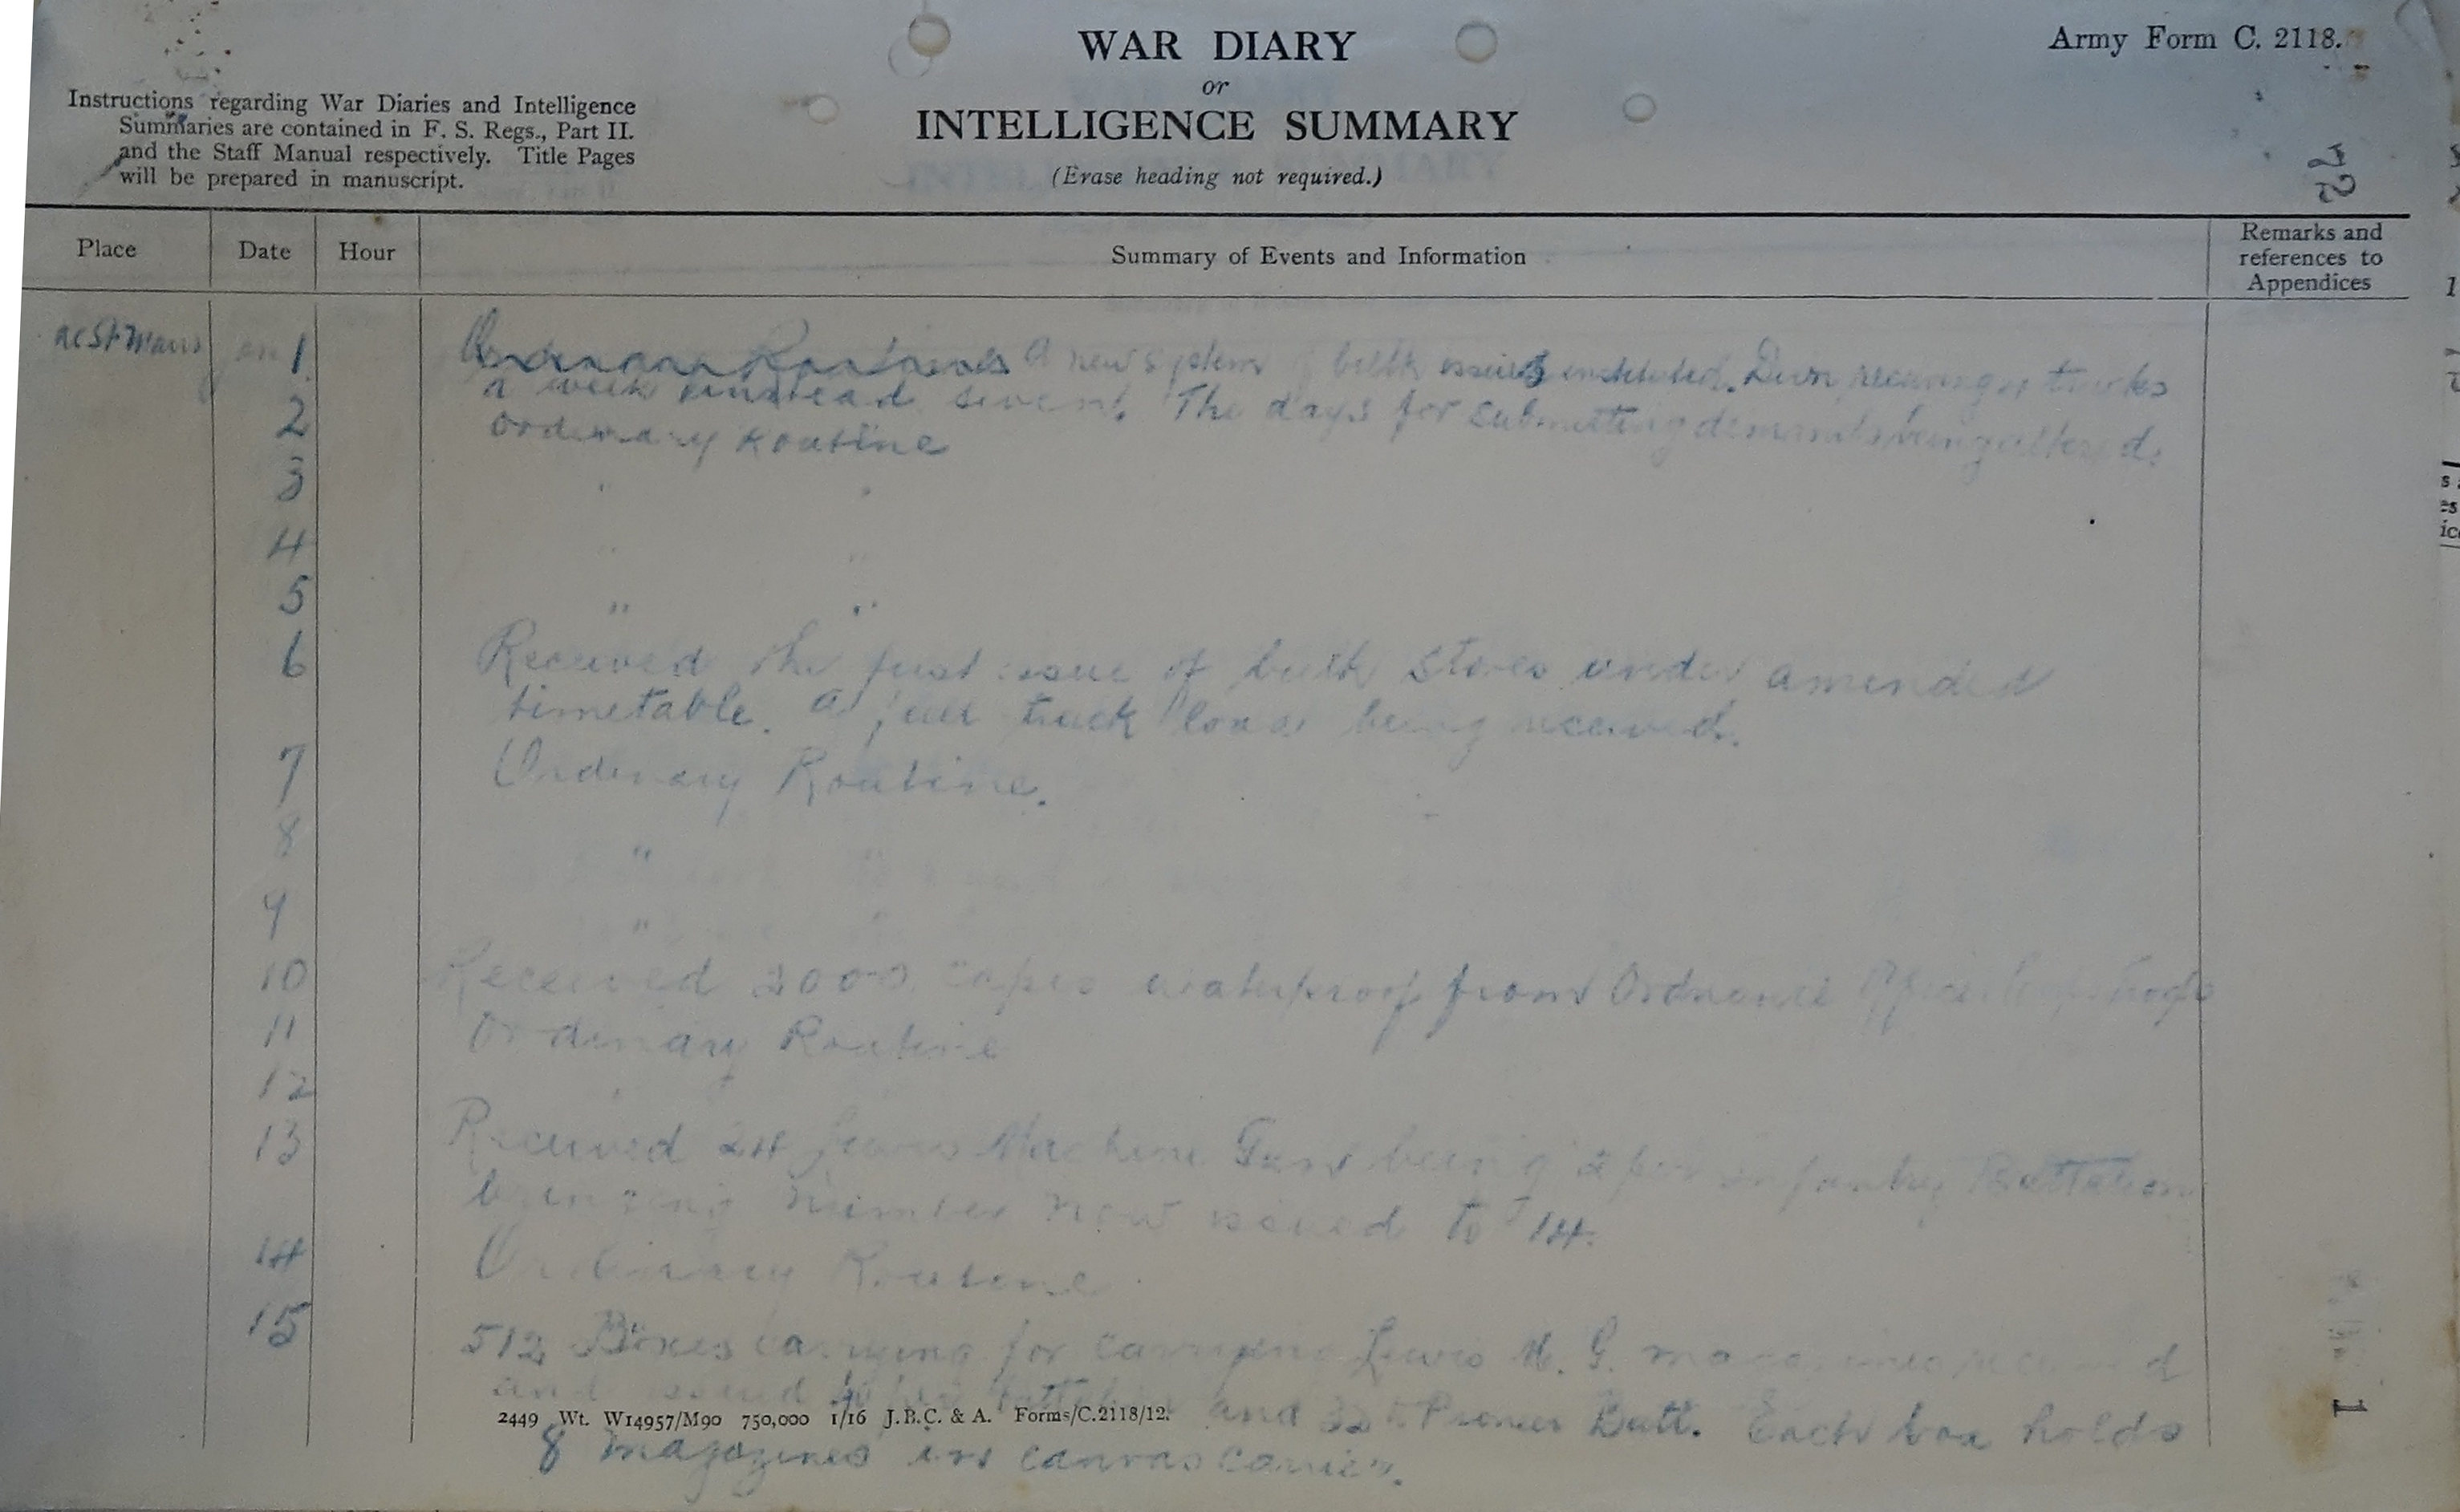 WAR DIARY
or
INTELLIGENCE SUMMARY
(Erase heading not required.)
Army Form C. 2118.
Instructions regarding War Diaries and Intelligence
Summaries are contained in F. S. Regs., Part II.
and the Staff Manual respectively. Title Pages
will be prepared in manuscript.
72
Place Date Hour Summary of Events and Information Remarks and
references to
Appendices
1 A new system of bulk issues instituted. Divn receiving trucks
a week instead seven. The days for submitting demands being altered.
2 Ordinary Routine
3 " "
4 " "
5 " "
6 Received the first issue of bulk stores under amended
timetable. A full truck load being received.
7 Ordinary Routine.
8 " "
9 "
10 Received 2000 capes waterproof from Ordnance Officer Troops
11 Ordinary Routine
12
13 Received 24 Lewis Machine Guns being 2 per infantry Battalion
bringing number now issued to 14.
14 Ordinary Routine
15 512 Boxes carrying for carrying Lewis M. G. magazines received
and issued Battalion and Pioneer Batt. Each box holds
8 magazines in canvas carrier.
2449 Wt. W14957/M90 750,000 1/16 J.B.C. & A. Forms/C.2118/12.
1